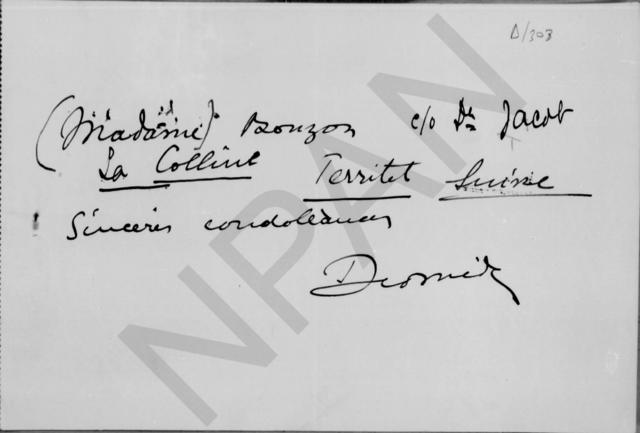 Δ/303
(Madame) Bouzon c/o Dr Jacob
La Colline Territet Suisse
Sincères condoléances
Diomède
NPAN